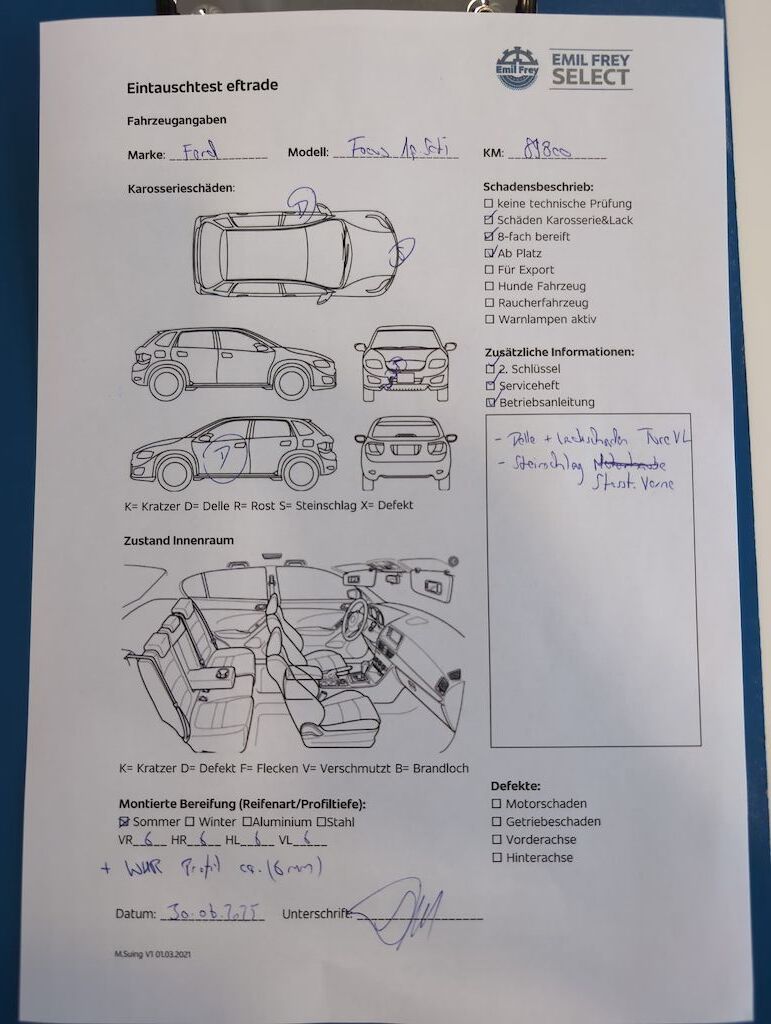 Emil Frey
EMIL FREY
SELECT
Eintauschtest eftrade
Fahrzeugangaben
Marke: Ford Modell: Focus KM: 89800
Karosserieschäden:
D
Schadensbeschrieb:
☐ keine technische Prüfung
☑ Schäden Karosserie&Lack
☑ 8-fach bereift
☑ Ab Platz
☐ Für Export
☐ Hunde Fahrzeug
☐ Raucherfahrzeug
☐ Warnlampen aktiv
Zusätzliche Informationen:
☑ 2. Schlüssel
☑ Serviceheft
☑ Betriebsanleitung
D
- Delle + Lackschaden Türe VL
- Steinschlag Motorhaube
Stosst. Vorne
K= Kratzer D= Delle R= Rost S= Steinschlag X= Defekt
Zustand Innenraum
K= Kratzer D= Defekt F= Flecken V= Verschmutzt B= Brandloch
Montierte Bereifung (Reifenart/Profiltiefe):
☒ Sommer ☐ Winter ☐Aluminium ☐Stahl
VR 6 HR 6 HL 6 VL 6
+ WHR Profil ca. (6mm)
Defekte:
☐ Motorschaden
☐ Getriebeschaden
☐ Vorderachse
☐ Hinterachse
Datum: 30.06.2025 Unterschrift:
M.Suing V1 01.03.2021